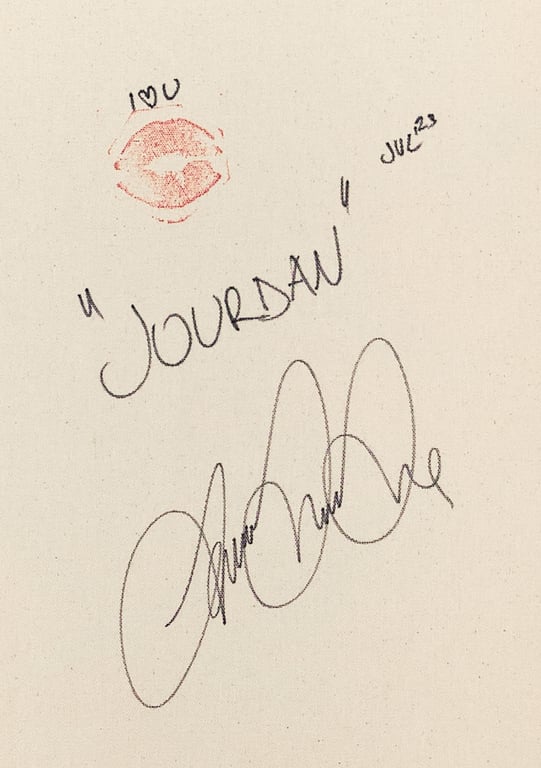 I♡U
JUL '23
"JOURDAN"